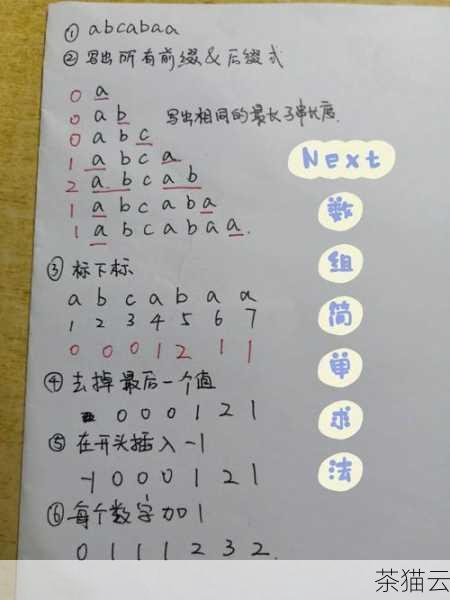 ① abcabaa
② 写出所有前缀&后缀式
0 a
0 ab 写出相同的最长子串长度.
0 abc
1 abca
2 abcab
1 abcaba
1 abcabaa.
③ 标下标
a b c a b a a
1 2 3 4 5 6 7
0 0 0 1 2 1 1
④ 去掉最后一个值
0 0 0 1 2 1
⑤ 在开头插入-1
-1 0 0 0 1 2 1
⑥ 每个数字加1
0 1 1 1 2 3 2.
Next
数
组
简
单
求
法
茶猫云